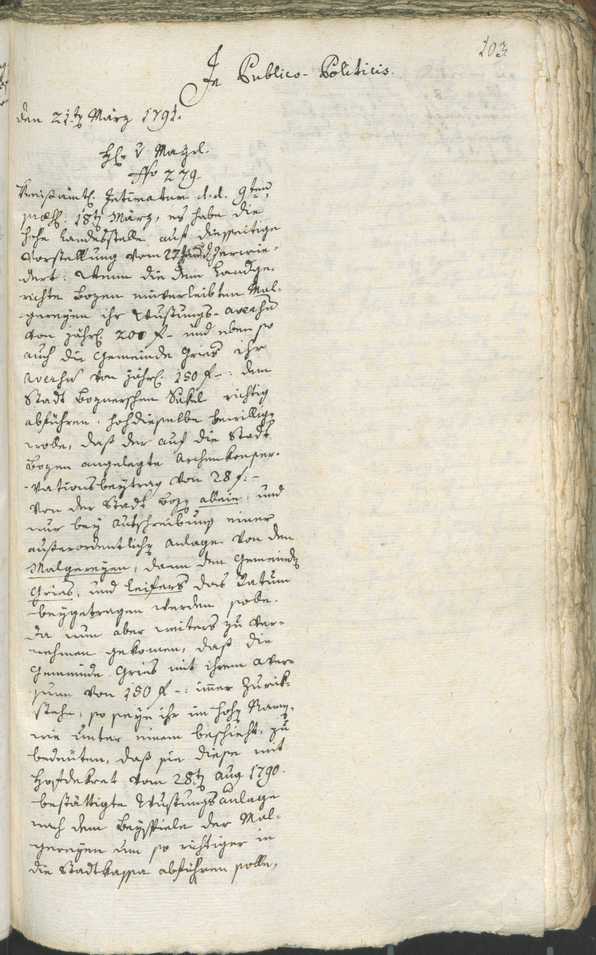 103
In Publico-Politicis.
den 21ten März 1791.
H. v Mayrl.
No 279.
Kreisämtl. Intimatum d. d. 9ten,
præs. 18ten März, es habe die
hohe Landesstelle auf diesseitige
Vorstellung vom erwie-
dert: Wenn die dem Landge-
richte Bozen einverleibten Mal-
gereyen ihr Wustungs-aversum
von jährl. 200 f – und eben so
auch die Gemeinde Gries ihr
aversum von jährl. 150 f –: dem
Stadt Boznerschen Säkel richtig
abführen: hochdieselbe bewillige
wolle, daß der auf die Stadt
Bozen angelegte Archenkonser-
vationsbeytrag von 28 f: –
von der Stadt Bozen allein, und
nur bey Ausschreibung einer
außerordentlichen Anlage von den
Malgereyen, dann den Gemeinden
Gries, und Leifers das Ratum
beygetragen werden solle.
Da nun aber weiters zu ver-
nehmen gekomen, daß die
Gemeinde Gries mit ihrem aver-
sum von 150 f –: imer zurük-
stehe, so seye ihr im hohen Namen,
wie unter einem beschieht, zu
bedeuten, daß sie diese mit
Hofdekret vom 28ten Aug. 1790.
bestättigte Wustungsanlage
nach dem Beyspiele der Mal-
gereyen um so richtiger in
die Stadtkassa abführen solle,